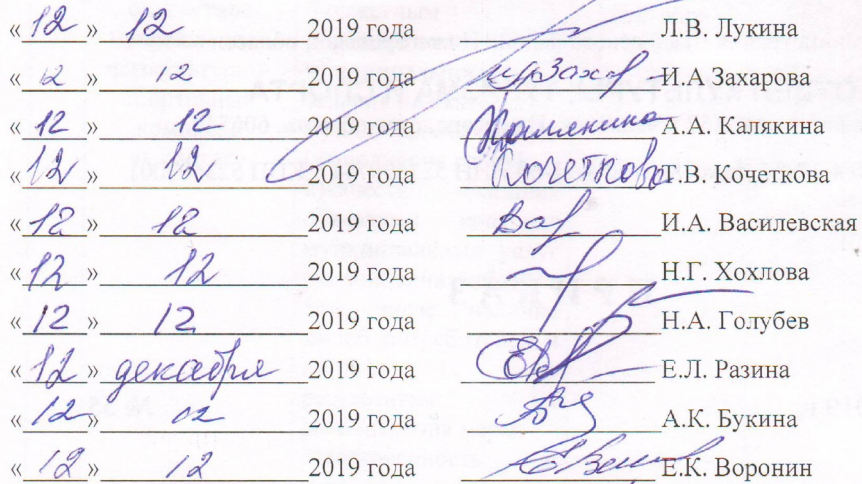 « 12 » 12 2019 года Л.В. Лукина
« 12 » 12 2019 года И.А Захарова
« 12 » 12 2019 года Калякина А.А. Калякина
« 12 » 12 2019 года Кочеткова Т.В. Кочеткова
« 12 » 12 2019 года Вас И.А. Василевская
« 12 » 12 2019 года Н.Г. Хохлова
« 12 » 12 2019 года Н.А. Голубев
« 12 » декабря 2019 года Е.Л. Разина
« 12 » 02 2019 года А.К. Букина
« 12 » 12 2019 года Е.К. Воронин